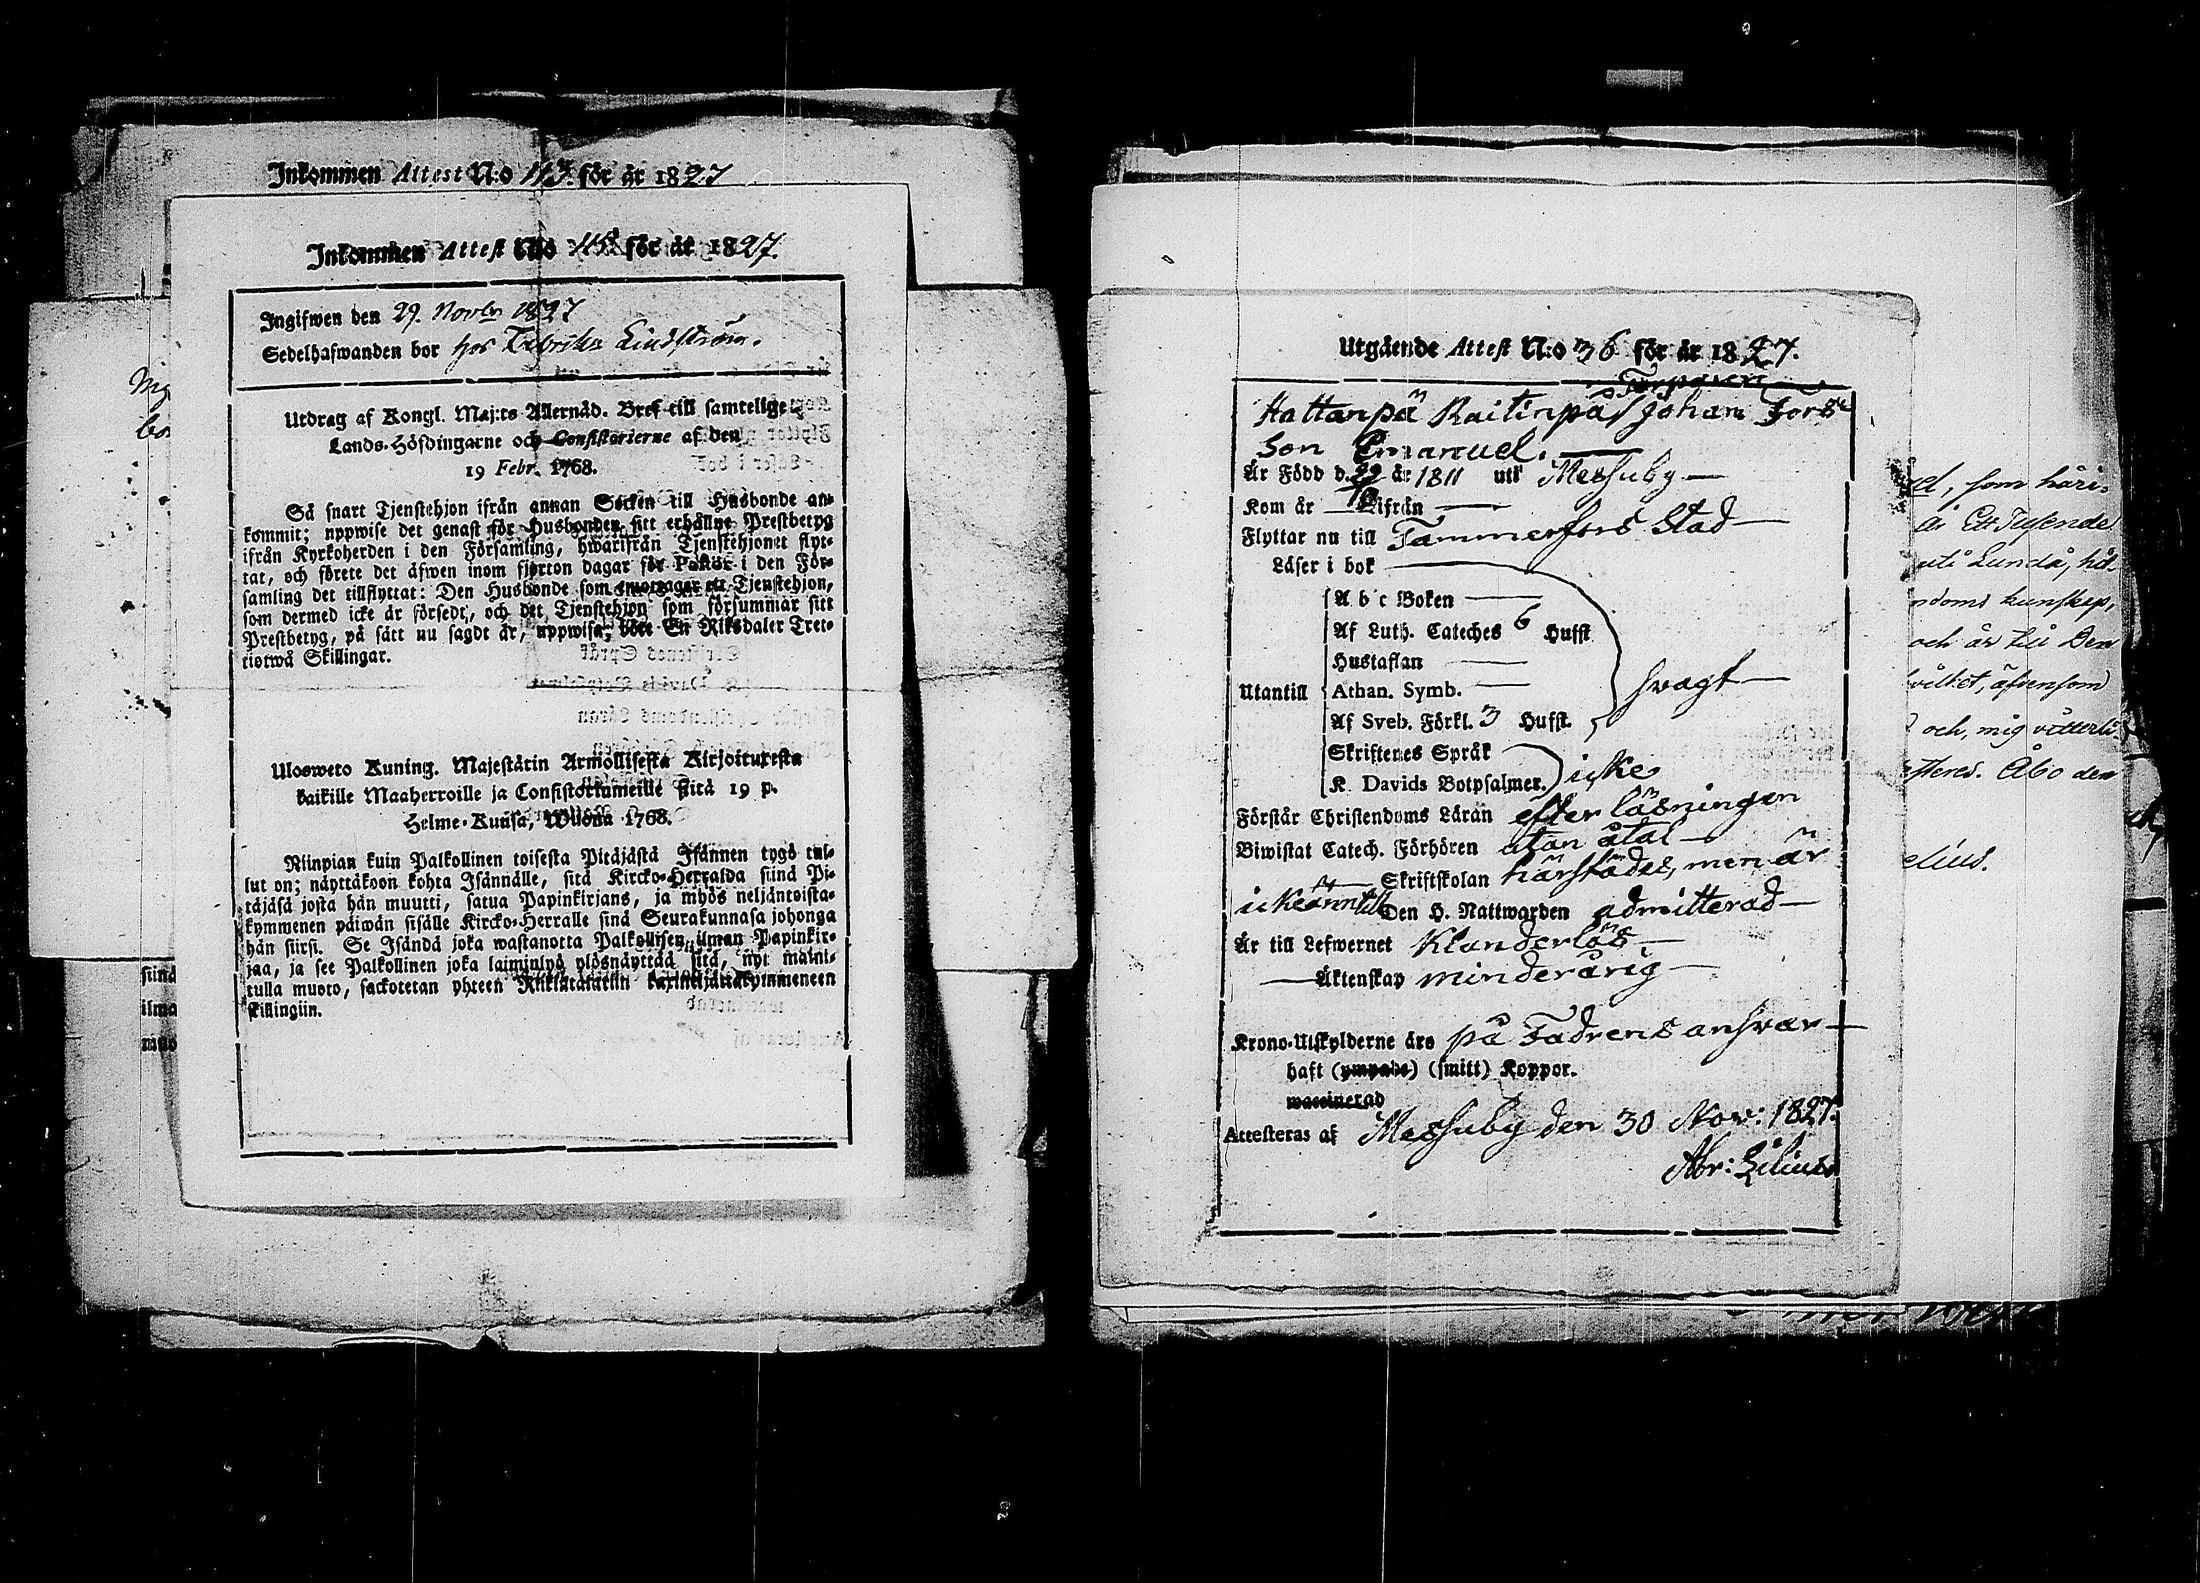 Inkommen Attest N:o 113 för år 1827
Inkommen Attest N:o 115 för år 1827.
Ingifwen den 29. Novbr 1827
Sedelhafwanden bor hos Fabrikör Lindström.
Utdrag af Kongl. Maj:ts Allernåd. Bref till samtelige
Lands-Höfdingarne och Consistorierne af den
19 Febr. 1768.
Så snart Tjenstehjon ifrån annan Socken till Husbonde an-
kommit; uppwise det genast för Husbonden sitt erhållne Prestbetyg
ifrån Kyrkoherden i den Församling, hwarifrån Tjenstehjonet flyt-
tat, och förete det äfwen inom fjorton dagar för Pastor i den För-
samling det tillflyttat: Den Husbonde som emottager ett Tjenstehjon,
som dermed icke är försedt, och det Tjenstehjon som försummar sitt
Prestbetyg, på sätt nu sagdt är, uppwisa, böte En Riksdaler Tret-
tiotwå Skillingar.
Ulosweto Kuning. Majestätin Armollisesta Kirjoituxesta
kaikille Maaherroille ja Consistoriumeille siitä 19 p.
Helme-Kuusa, Wuona 1768.
Niinpian kuin Palkollinen toisesta Pitäjästä Isännen tygö tul-
lut on; näyttäkoon kohta Isännälle, sitä Kircko-Herralda siinä Pi-
täjäsä josta hän muutti, saatua Papinkirjans, ja myös neljäntoista-
kymmenen päiwän sisälle Kircko-Herralle siinä Seurakunnasa johonga
hän siirsi. Se Isändä joka wastanotta Palkollisen ilman Papinkir-
jaa, ja see Palkollinen joka laiminlyö ylösnäyttää sitä, nyt maini-
tulla muoto, sackotetan yhteen Riikintalariin kaxineljättäkymmeneen
skillingiin.
Utgående Attest N:o 36 för år 1827.
Torparen
Hattanpä Raitinpä Johan Fors
Son Emanuel.
Är Född d. 22/10 år 1811 uti Messuby
Kom år ifrån
Flyttar nu till Tammerfors Stad
Läser i bok
A b c Boken
Af Luth. Cateches 6 Hufst
Hustaflan
Utantill Athan. Symb. svagt
Af Sveb. Förkl. 3 Hufst.
Skriftenes Språk
K. Davids Botpsalmer. icke
Förstår Christendoms Läran efter läsningen
Biwistat Catech. Förhören utan åtal
Skriftskolan härstädes, men är
icke ännu till Den H. Nattwarden admitterad
Är till Lefwernet Klanderlös
Äktenskap minderårig
Krono-Utskylderne äro på Fadrens answar
haft (ympade) (smitt) Koppor.
waccinerad
Attesteras af Messuby den 30 Nov: 1827.
Abr: Lilius
som häri-
Ett Tusende
Lunda, hål
kunskap,
och är till Den
hvilket, äfvensom
och, mig vitterli-
Åbo den
elius.